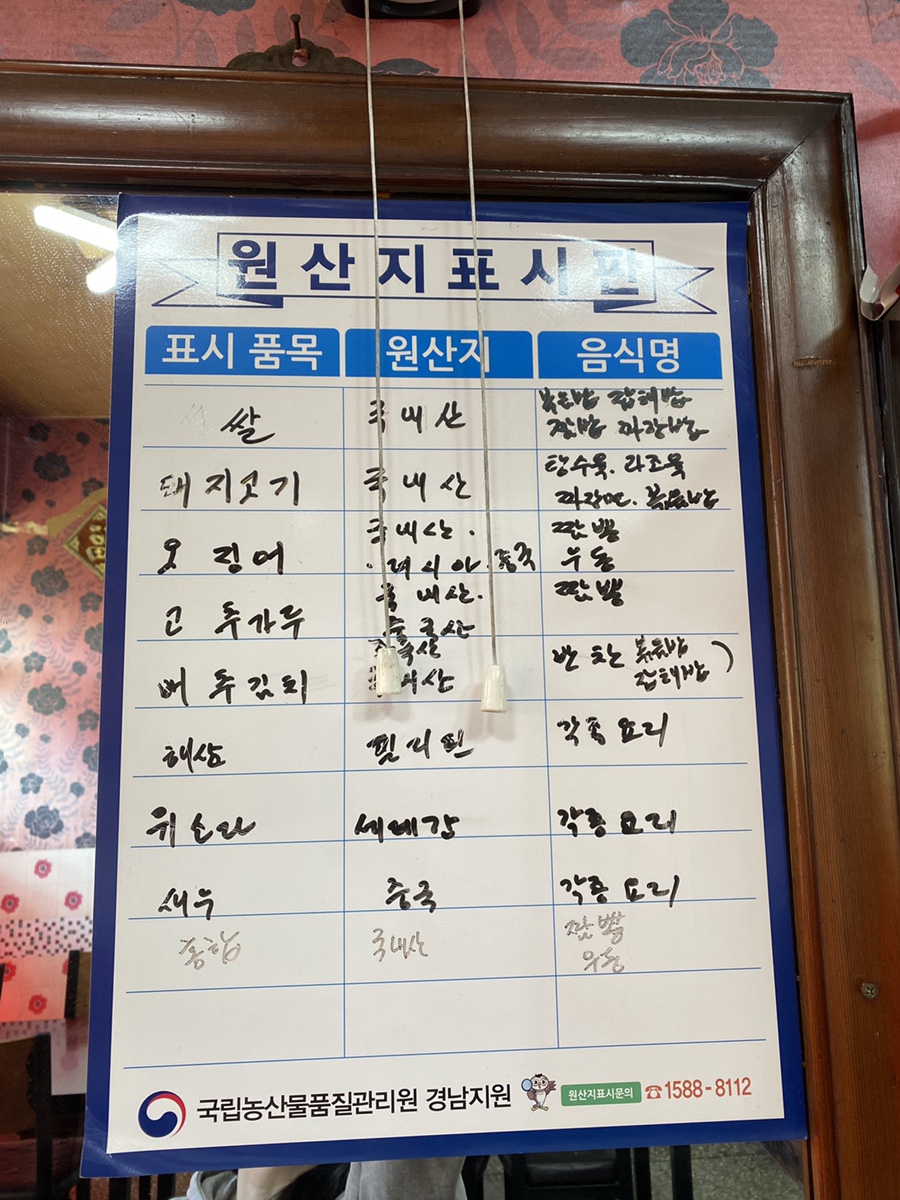 원산지표시판
표시 품목 원산지 음식명
쌀 국내산 볶음밥 잡채밥
짬밥 짜장밥
돼지고기 국내산 탕수육. 라조육
짜장면. 볶음밥
오징어 국내산. 짬뽕
. 러시아. 중국 우동
고추가루 국내산. 짬뽕
중국산
배추김치 중국산 반찬 볶음밥
국내산 잡채밥)
해삼 필리핀 각종 요리
위소라 세네갈 각종 요리
새우 중국 각종 요리
홍합 국내산 짬뽕
우동
국립농산물품질관리원 경남지원 원산지표시문의 ☎1588-8112